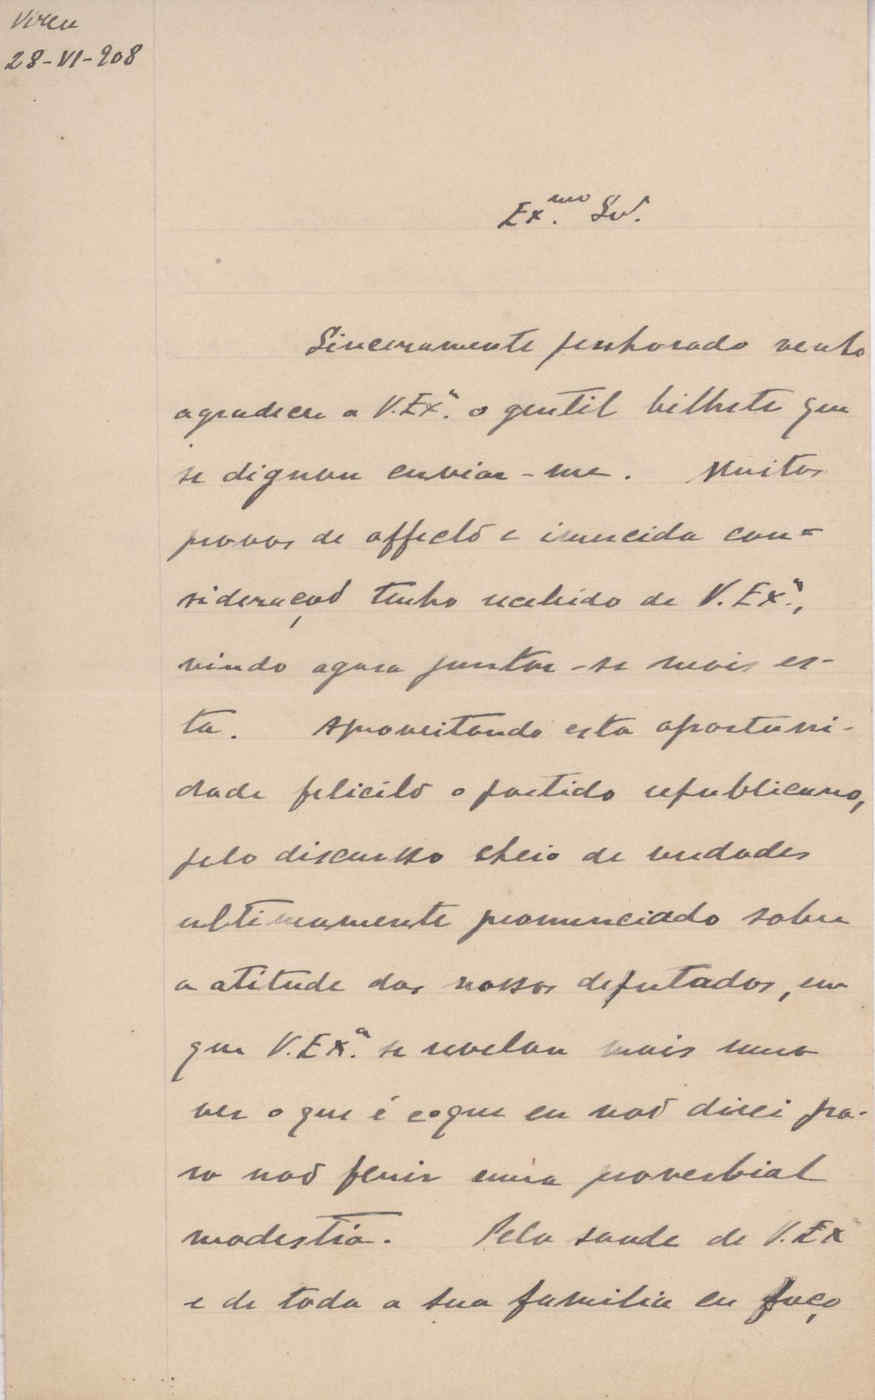 Vizeu
28-VI-908
Ex.mo Sr.
Sinceramente penhorado venho
agradecer a V. Ex.a o gentil bilhete que
se dignou enviar-me. Muitas
provas de affecto e imerecida con=
sideração tenho recebido de V. Ex.a,
vindo agora juntar-se mais es-
ta. Aproveitando esta oportuni-
dade felicito o partido republicano,
pelo discurso cheio de verdades
ultimamente pronunciado sobre
a atitude dos nossos deputados, em
que V. Ex.a se revelou mais uma
vez o que é e o que eu não direi pa-
ra não ferir uma proverbial
modestia. Pela saude de V. Ex
e de toda a sua familia eu faço